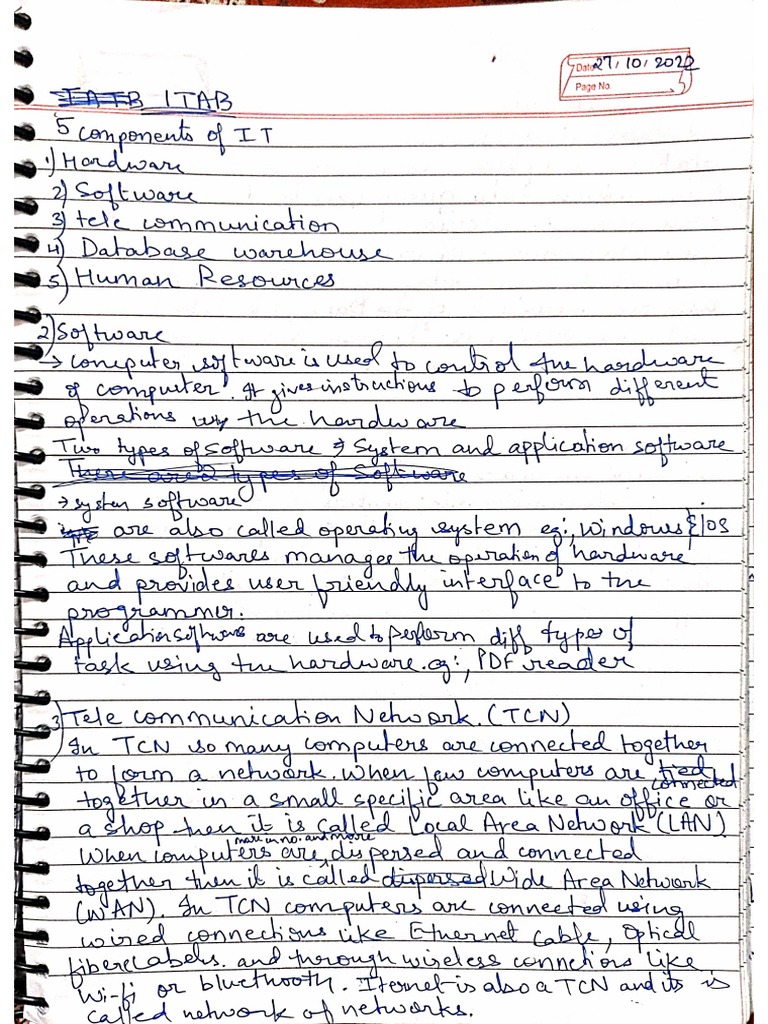 Date 27/10/2022
Page No.
ITAB
5 components of IT
1) Hardware
2) Software
3) tele communication
4) Database warehouse
5) Human Resources
2) Software
→ Computer software is used to control the hardware
of computer. It gives instructions to perform different
operations the hardware
Two types of Software → System and application software
There are 2 types of Software
→ system software
are also called operating system eg:, Windows & IOS
These softwares manages the operation of hardware
and provides user friendly interface to the
programmer.
Application softwares are used to perform diff types of
task using the hardware. eg:, PDF reader
3) Tele communication Network. (TCN)
In TCN so many computers are connected together
to form a network. When few computers are tied
connected
together in a small specific area like an office or
a shop then it is called Local Area Network (LAN)
more in no. and more
When computers are, dispersed and connected
together then it is called dispersed Wide Area Network
(WAN). In TCN computers are connected using
wired connections like Ethernet Cable, Optical
fibere labels. and through wireless connections like
Wi-fi or bluethooth. Iternet is also a TCN and its is
called network of networks.